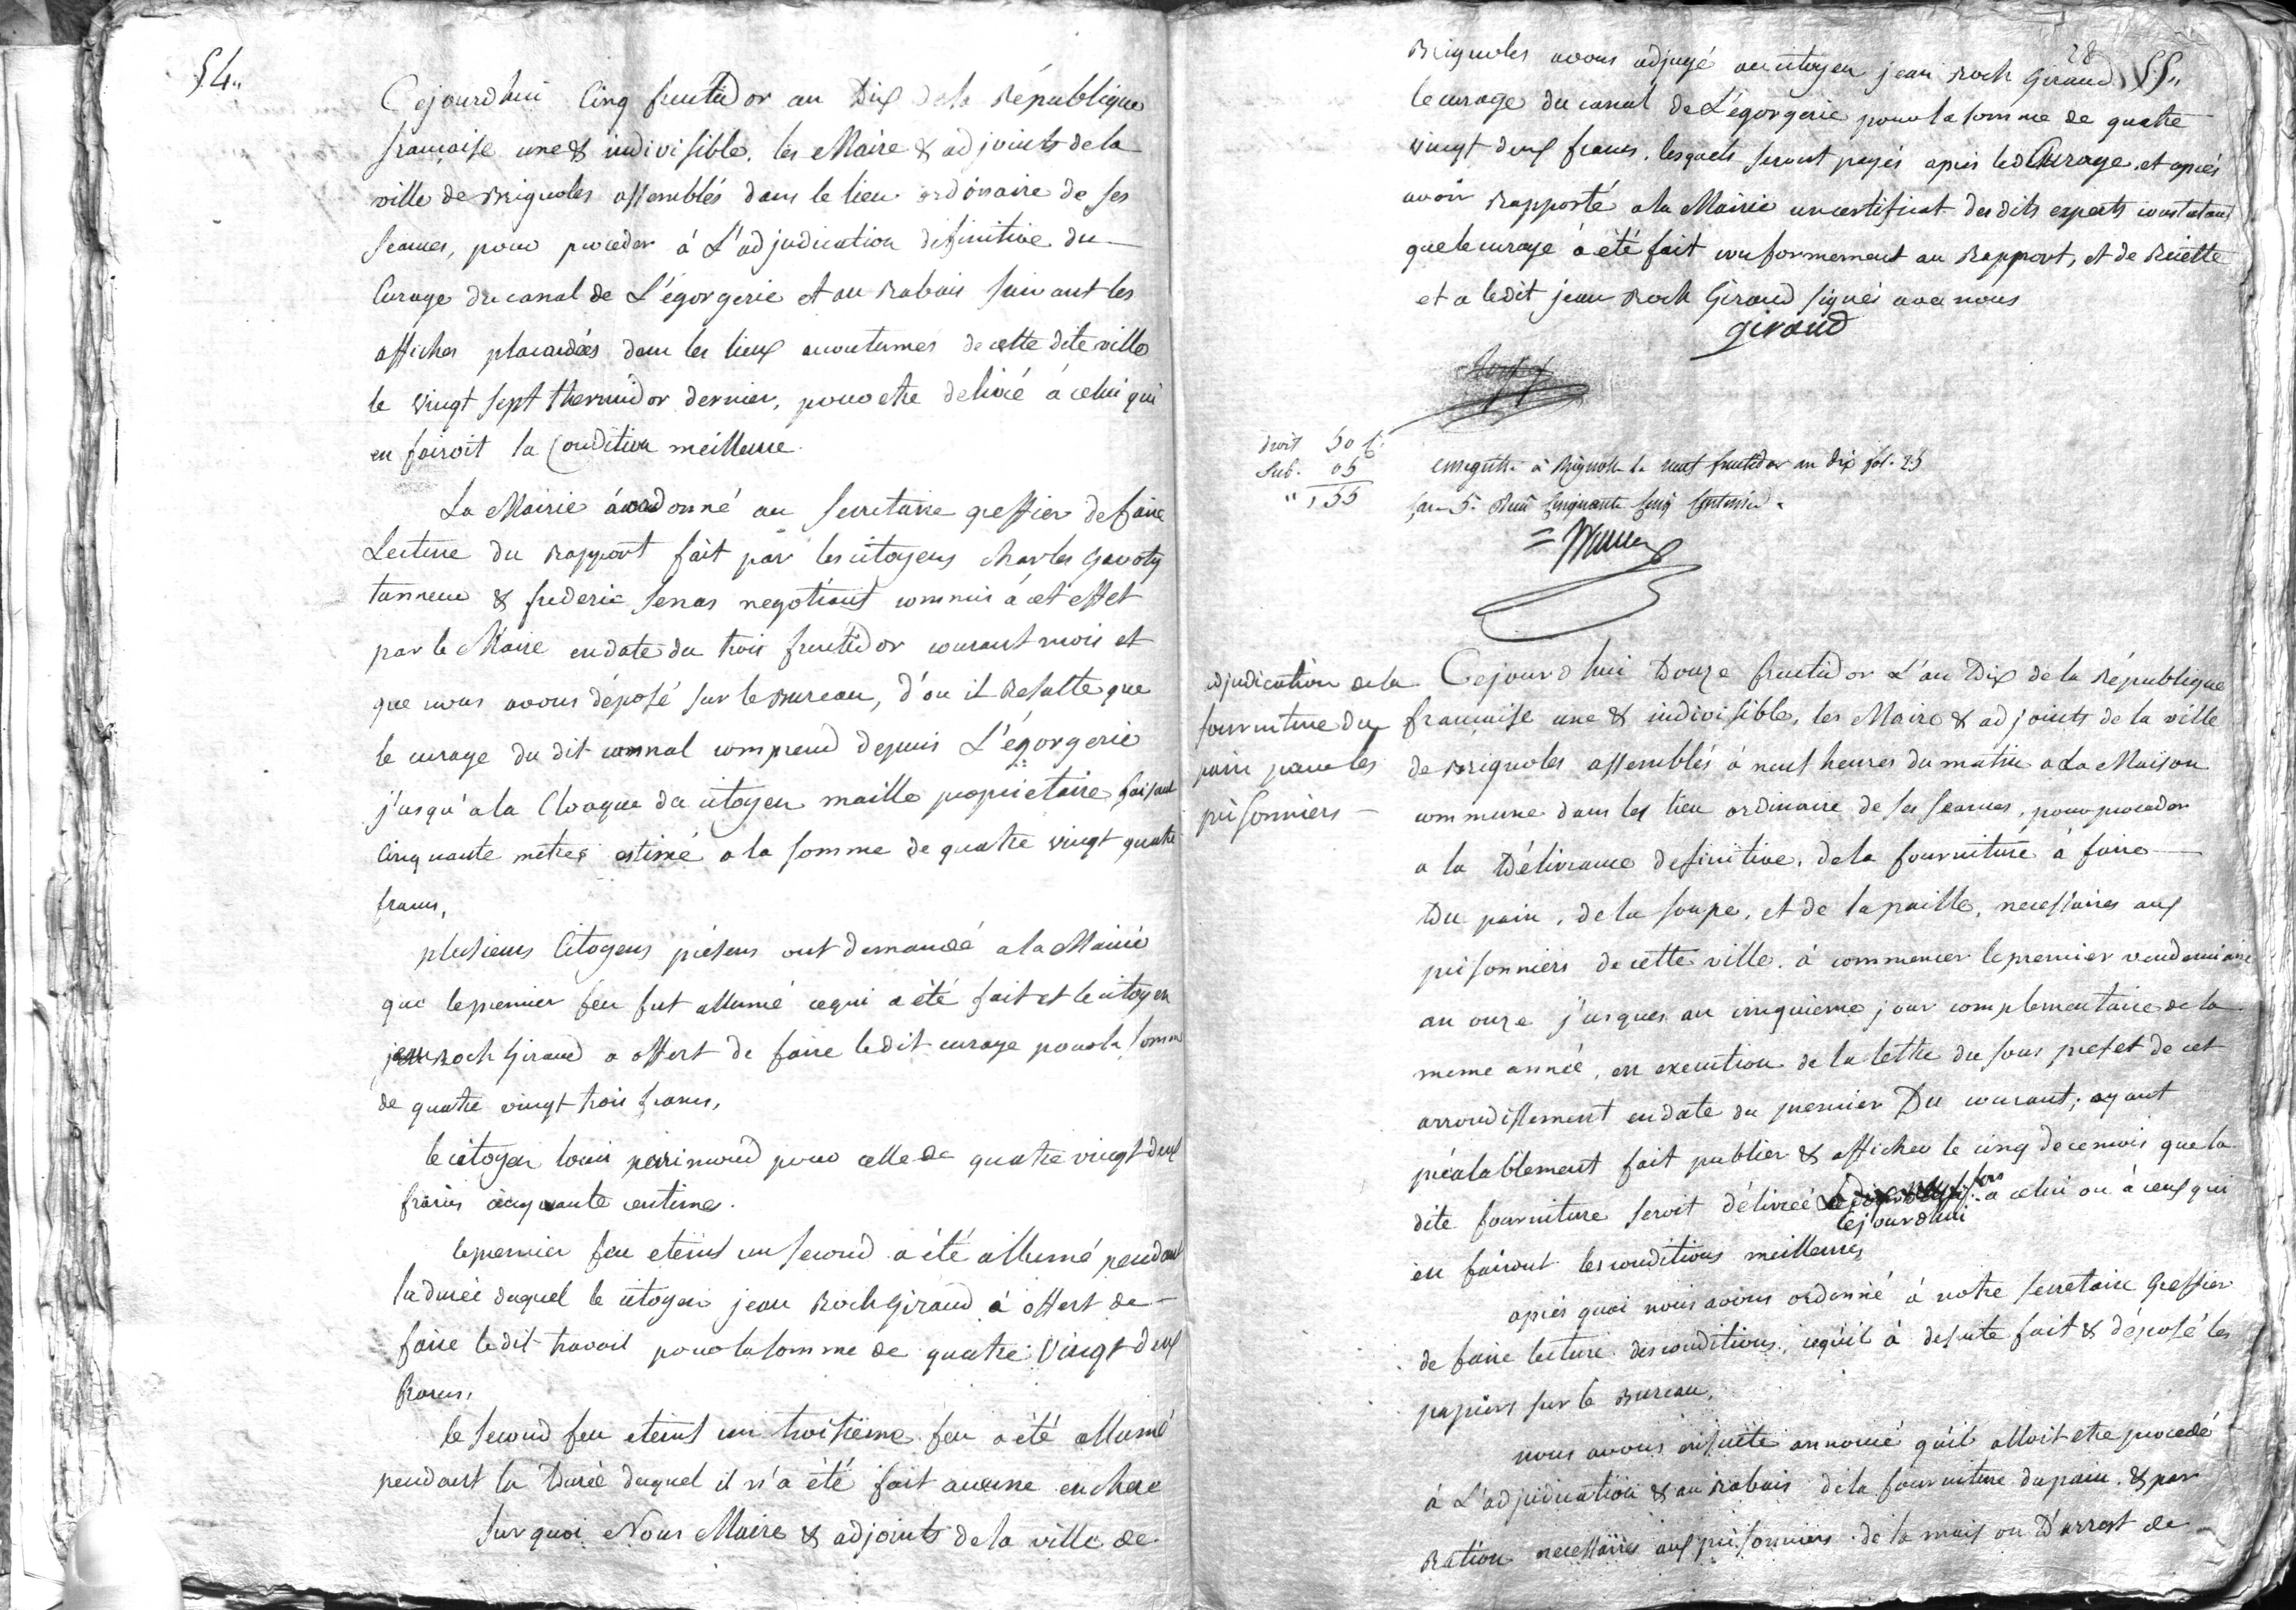 54.
Cejourdhui Cinq fructidor an Dix de la République
française une & indivisible, les Maire & adjoints de la
ville de Brignoles assemblés dans le lieu ordônaire de ses
seances, pour proceder à L'adjudication définitive du
Curage du canal de L'égorgerie et au Rabais suivant les
affiches placardées dans les lieux accoutumés de cette dite ville
le vingt sept thermidor dernier, pour etre delivré à celui qui
en fairoit la Condition meilleure.
La Mairie à ordonné au secretaire greffier de faire
Lecture du Rapport fait par les citoyens charles gavoty
tanneur & frederic senas negotiant commis à cet effet
par le Maire en date du trois fructidor courant mois et
que nous avons déposé sur le Bureau, d'ou il Resulte que
le curage du dit cannal comprend depuis L'égorgerie
j'usqu'a la Cloaque du citoyen maille propriétaire faisant
Cinquante métres estimé a la somme de quatre vingt quatre
francs,
plusieurs Citoyens présens ont demandé a la Mairie
que le premier feu fut allumé ce qui a été fait et le citoyen
jean roch Giraud a offert de faire le dit curage pour la somme
de quatre vingt trois francs,
le citoyen louis perrimond pour celle de quatre vingt deux
francs cinquante centimes.
le premier feu eteint un second a été allumé pendant
la durée duquel le citoyen jean Roch Giraud à offert de
faire le dit travail pour la somme de quatre Vingt deux
francs,
le second feu eteint un troisième feu a été allumé
pendant la Durée duquel il n'a été fait aucune enchere
Sur quoi Nous Maire & adjoints de la ville de
28 55.
Brignoles avons adjugé au citoyen jean Roch Giraud
le curage du canal de L'égorgerie pour la somme de quatre
vingt deux francs, lesquels seront payés après led Curage, et après
avoir Rapporté a la Mairie un certificat des dits experts constatant
que le curage à été fait conformement au Rapport, et de Recette
et a le dit jean Roch Giraud signés avec nous
giraud
droit 50 c.
sub. 05
" , 55
enregistré à Brignole le neuf fructidor an dix fol. 25
Cinquante Cinq Centimes.
adjudication de la
fourniture du
pain pour les
prisonniers
Cejourd'hui Douze fructidor L'an Dix de la République
française une & indivisible, les Maire & adjoints de la ville
de Brignoles assemblés à neuf heures du matin a La Maison
commune dans les lieu ordinaire de ses seances, pour proceder
a la Délivrance definitive, de la fourniture à faire
Du pain, de la soupe, et de la paille, necessaires aux
prisonniers de cette ville. à commencer le premier vendemiaire
an onze j'usques au cinquieme jour complementaire de la
meme année, en execution de la lettre du sous prefet de cet
arrondissement en date du premier Du courant; ayant
préalablement fait publier & afficher le cinq de ce mois que la
dite fourniture seroit délivrée cejourdhui a celui ou à ceux qui
en fairont les conditions meilleures,
après quoi nous avons ordonné à notre secretaire Greffier
de faire lecture des conditions, cequ'il à desuite fait & déposé les
papiers sur le Bureau,
nous avons ensuite annoncé qu'il alloit etre procedé
à L'adjudication & au Rabais de la fourniture du pain. & par
Ration necessaires aux prisonniers de la maison D'arrest de